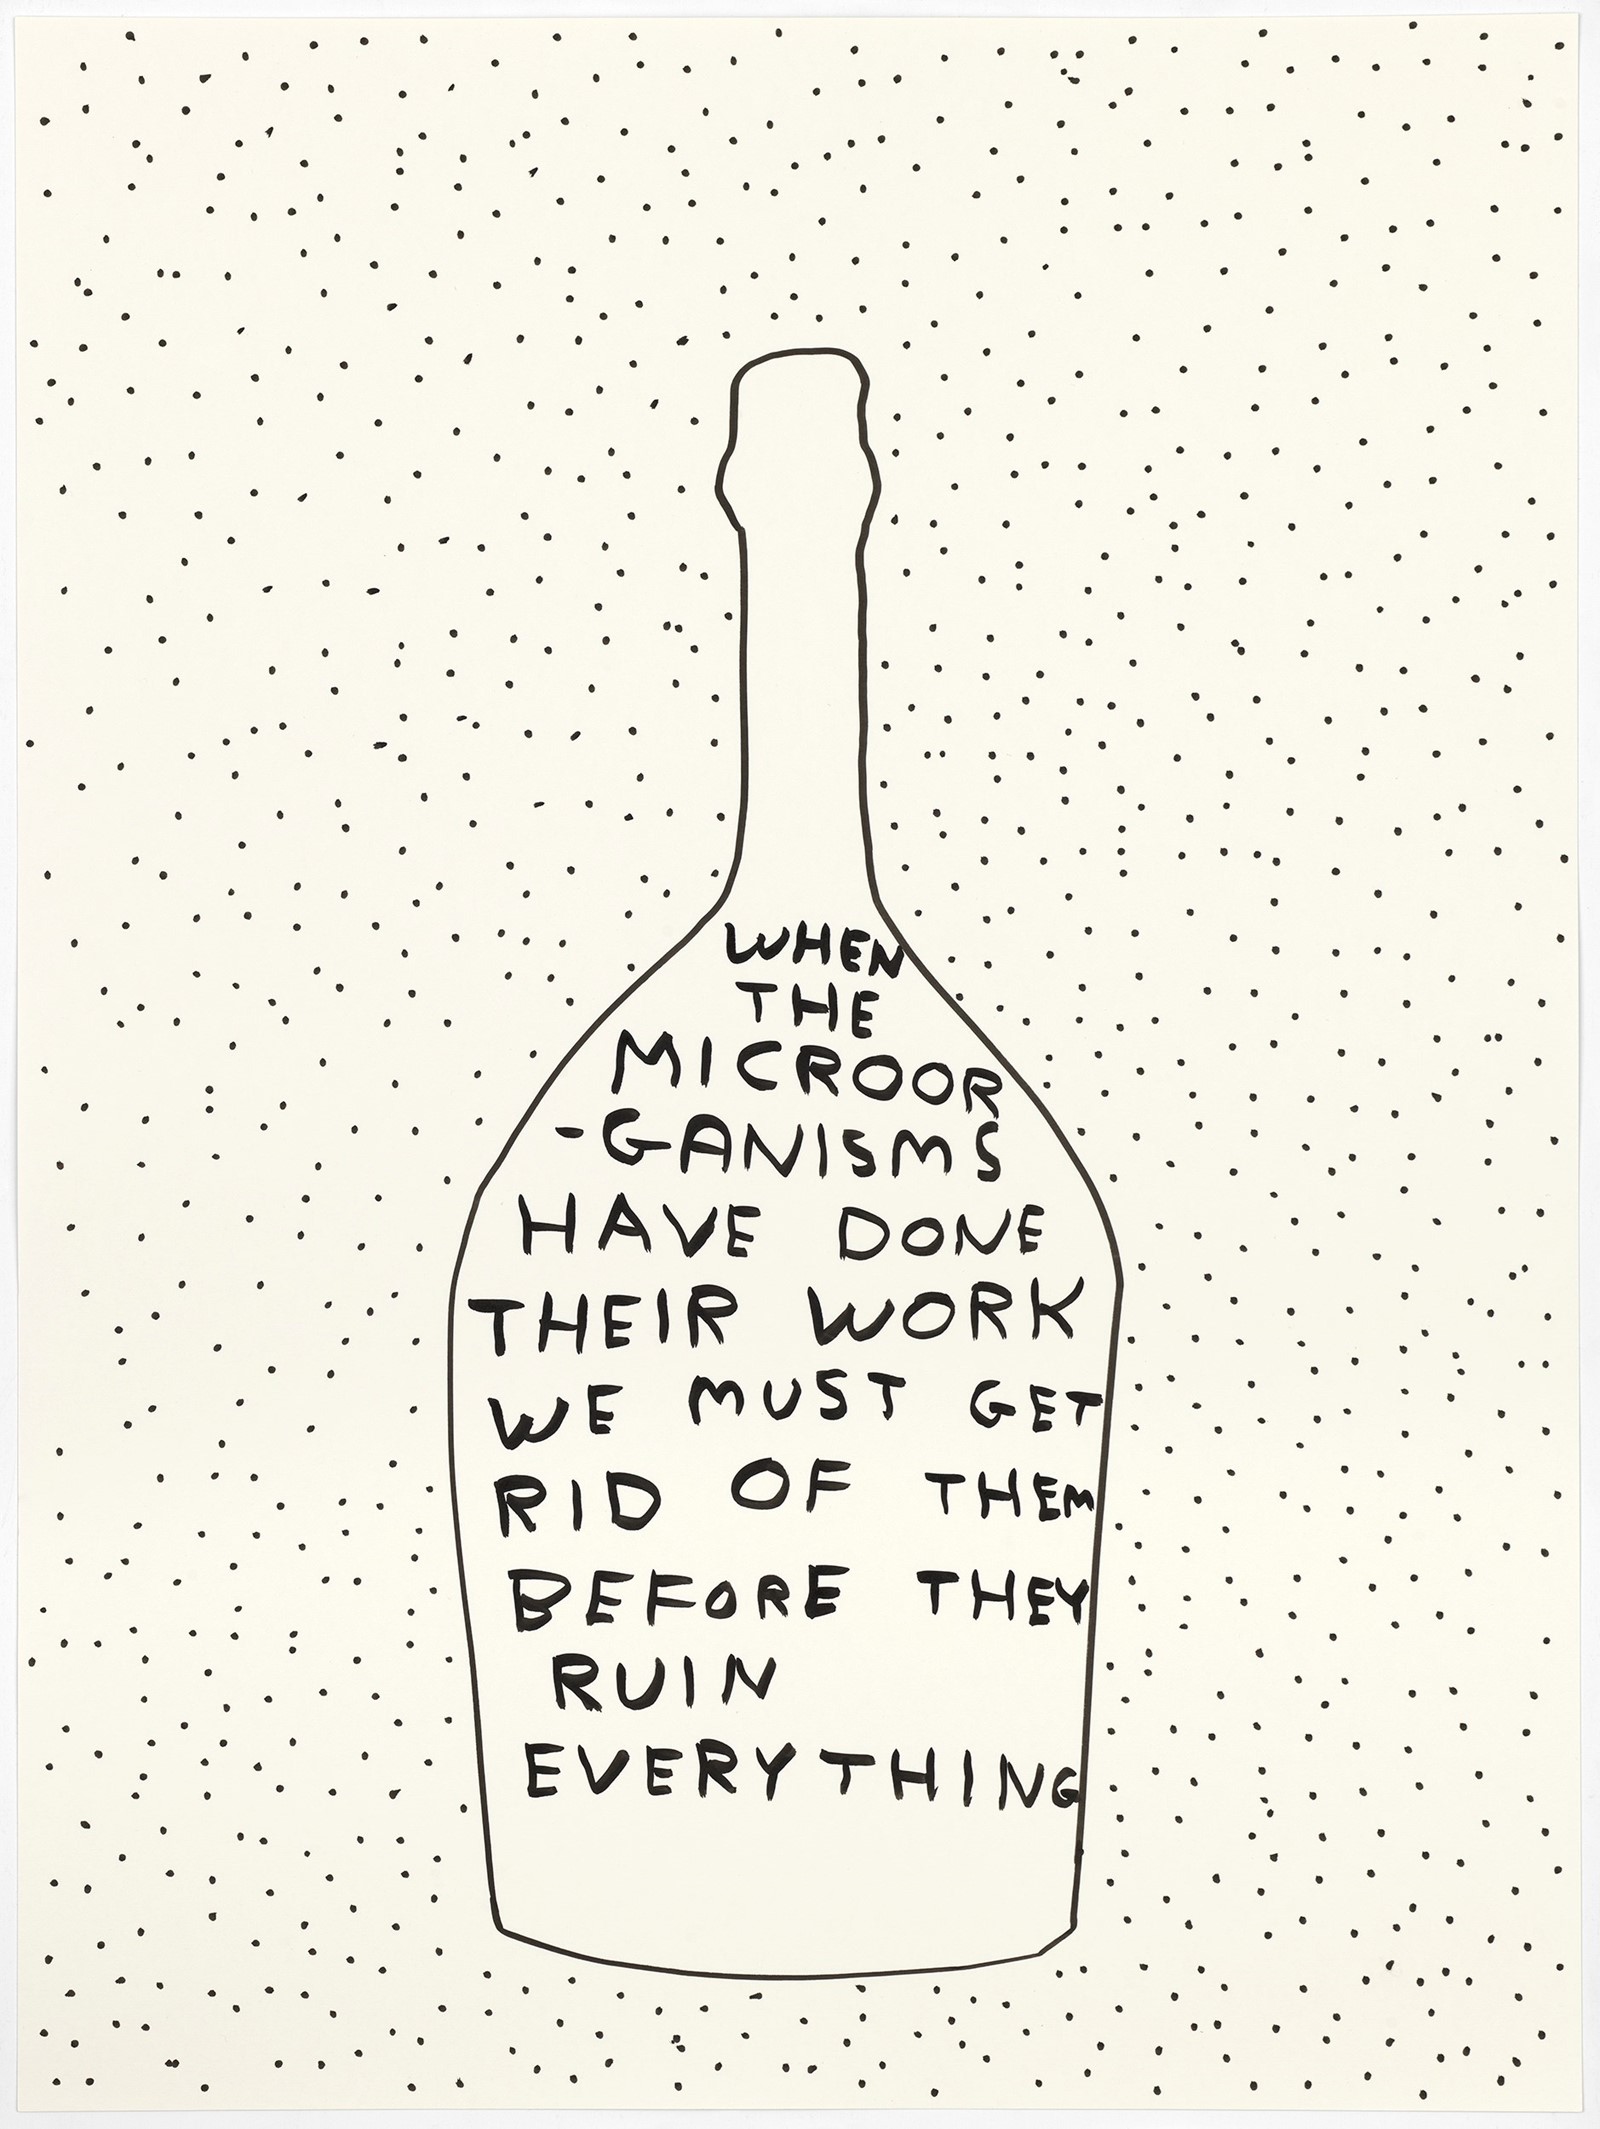 WHEN
THE
MICROOR
-GANISMS
HAVE DONE
THEIR WORK
WE MUST GET
RID OF THEM
BEFORE THEY
RUIN
EVERYTHING